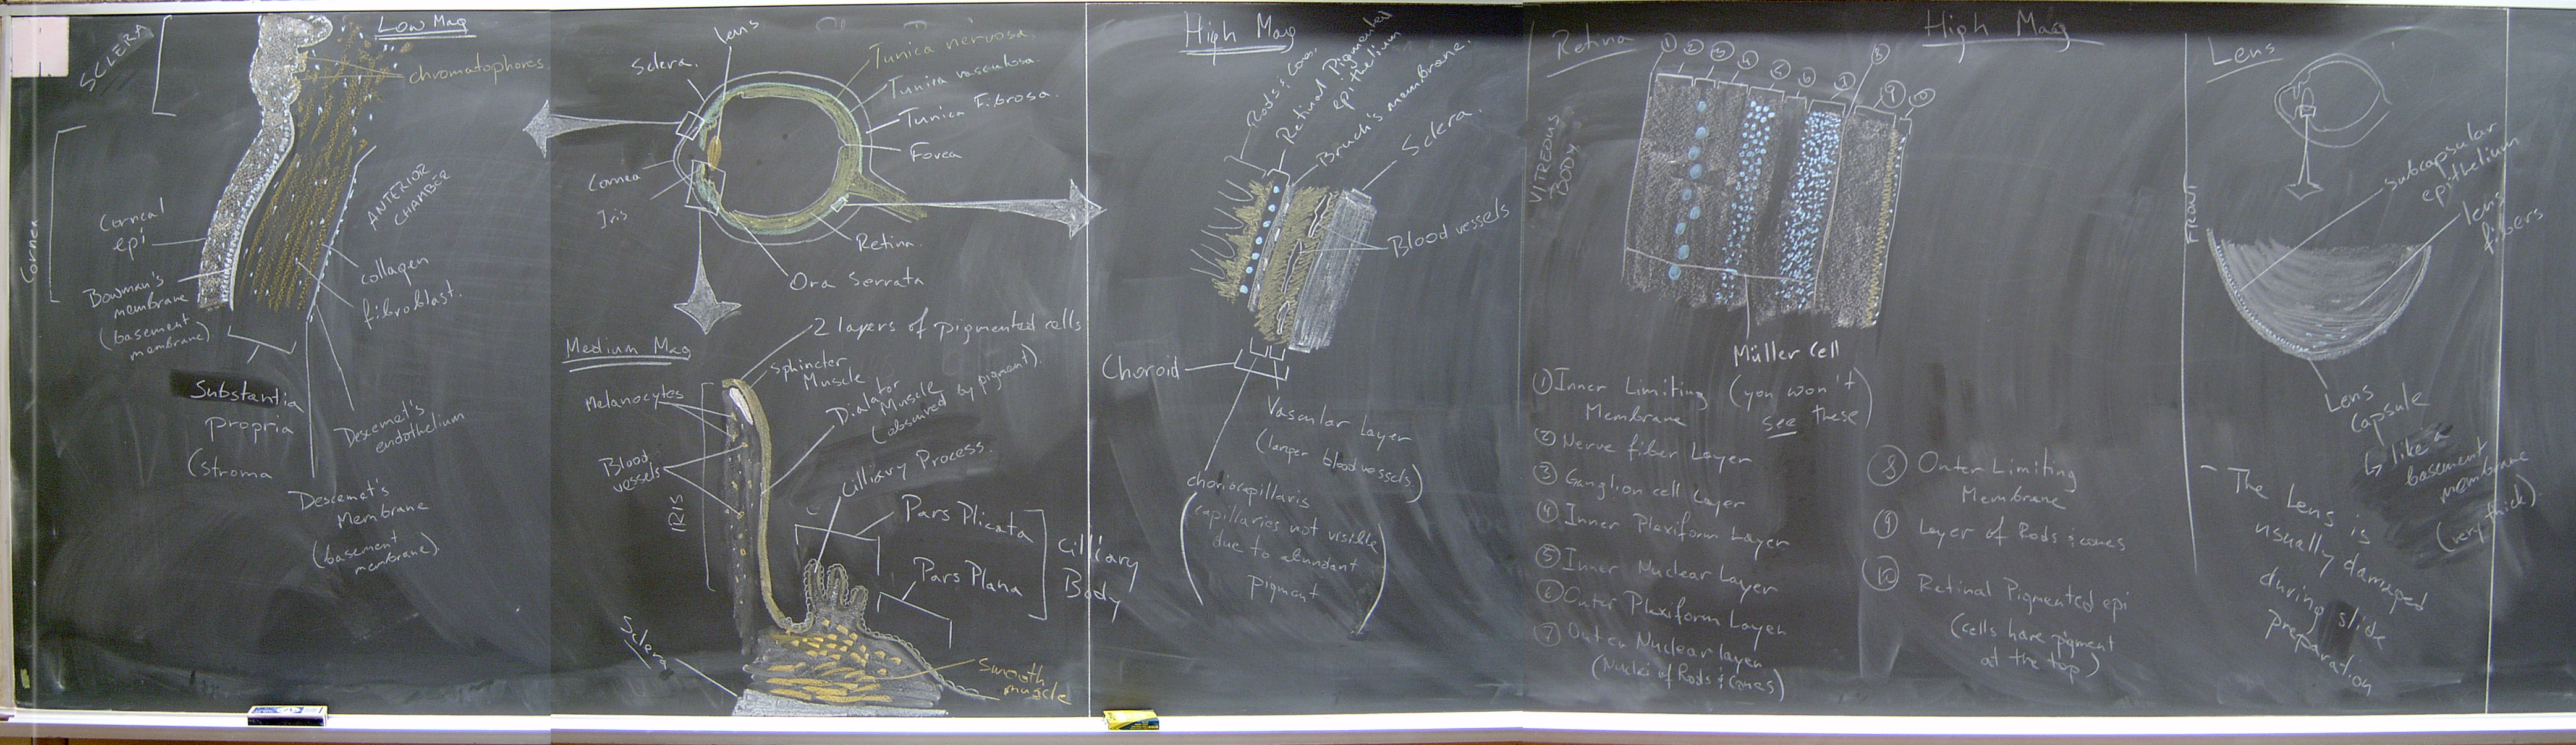 Low Mag
SCLERA
chromatophores
Cornea
ANTERIOR
CHAMBER
Corneal
epi
collagen
fibroblast.
Bowman's
membrane
(basement
membrane)
Substantia
propria
(stroma
Descemet's
endothelium
Descemet's
Membrane
(basement
membrane).
lens
Sclera.
Tunica nervosa.
Tunica vasculosa.
Tunica Fibrosa.
Fovea
Cornea
Iris
Retina.
Ora Serrata
Medium Mag
2 layers of pigmented cells
Sphincter
Muscle
Melanocytes
Dialator
Muscle
(obscured by pigment).
Blood
vessels
IRIS
Cilliary Process.
Pars Plicata
Pars Plana
Cilliary
Body
Sclera
Smooth
muscle
High Mag
Rods & Cones.
Retinal Pigmented
epithelium
Bruch's membrane.
Sclera.
Blood vessels
Choroid
Vascular Layer
(larger blood vessels)
choriocapillaris
(capillaries not visible
due to abundant
pigment)
Retina
High Mag
① ② ③ ④ ⑤ ⑥ ⑦ ⑧ ⑨ ⑩
VITREOUS
BODY
Müller Cell
(you won't
see these)
① Inner Limiting
Membrane
② Nerve fiber Layer
③ Ganglion cell Layer
④ Inner Plexiform Layer
⑤ Inner Nuclear Layer
⑥ Outer Plexiform Layer
⑦ Outer Nuclear layer
(Nuclei of Rods & Cones)
⑧ Outer Limiting
Membrane
⑨ Layer of Rods & cones
⑩ Retinal Pigmented epi
(cells have pigment
at the top)
Lens
FRONT
subcapsular
epithelium
lens
fibers
Lens
Capsule
↳ like a
basement
membrane
(very thick).
- The Lens is
usually damaged
during slide
preparation